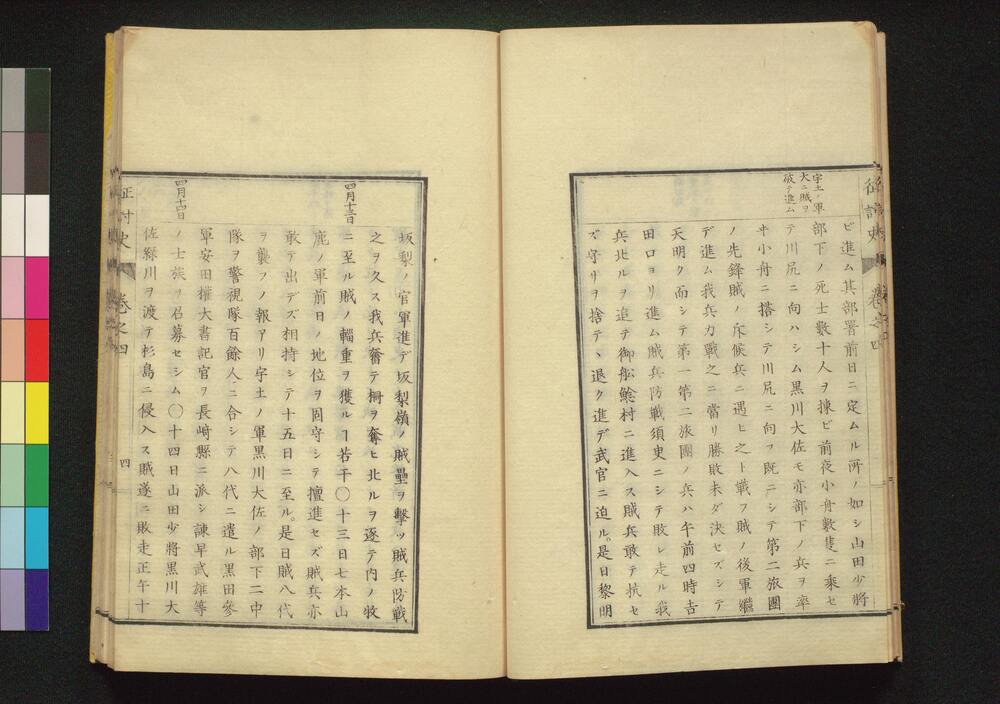 征討史
巻之四
宇土ノ軍
大ニ賊ヲ
破テ進ム
ビ進ム其部署前日ニ定ムル所ノ如シ山田少將
部下ノ死士數十人ヲ揀ビ前夜小舟數隻ニ乘セ
テ川尻ニ向ハシム黒川大佐モ亦部下ノ兵ヲ率
ヰ小舟ニ搭シテ川尻ニ向フ既ニシテ第二旅團
ノ先鋒賊ノ斥候兵ニ遇ヒ之ト戰フ賊ノ後軍繼
デ進ム我兵力戰之ニ當リ勝敗未ダ決セズシテ
天明ク而シテ第一第二旅團ノ兵ハ午前四時吉
田口ヨリ進ム賊兵防戰須臾ニシテ敗レ走ル我
兵北ルヲ追テ御舩鯰村ニ進入ス賊兵敢テ抗セ
ズ守リヲ捨テヽ退ク進デ武官ニ迫ル。是日黎明
坂梨ノ官軍進デ坂梨嶺ノ賊壘ヲ擊ツ賊兵防戰
之ヲ久ス我兵奮テ柵ヲ奪ヒ北ルヲ逐テ内ノ牧
四月十三日
ニ至ル賊ノ輜重ヲ獲ルヿ若干〇十三日七本山
鹿ノ軍前日ノ地位ヲ固守シテ擅進セズ賊兵亦
敢テ出デズ相持シテ十五日ニ至ル。是日賊八代
ヲ襲フノ報アリ宇土ノ軍黒川大佐ノ部下二中
隊ヲ警視隊百餘人ニ合シテ八代ニ遣ル黒田參
軍安田權大書記官ヲ長崎縣ニ派シ諫早武雄等
四月十四日
ノ士族ヲ召募セシム〇十四日山田少將黒川大
佐緑川ヲ渡テ杉島ニ侵入ス賊遂ニ敗走正午十
征討史
巻之四
四